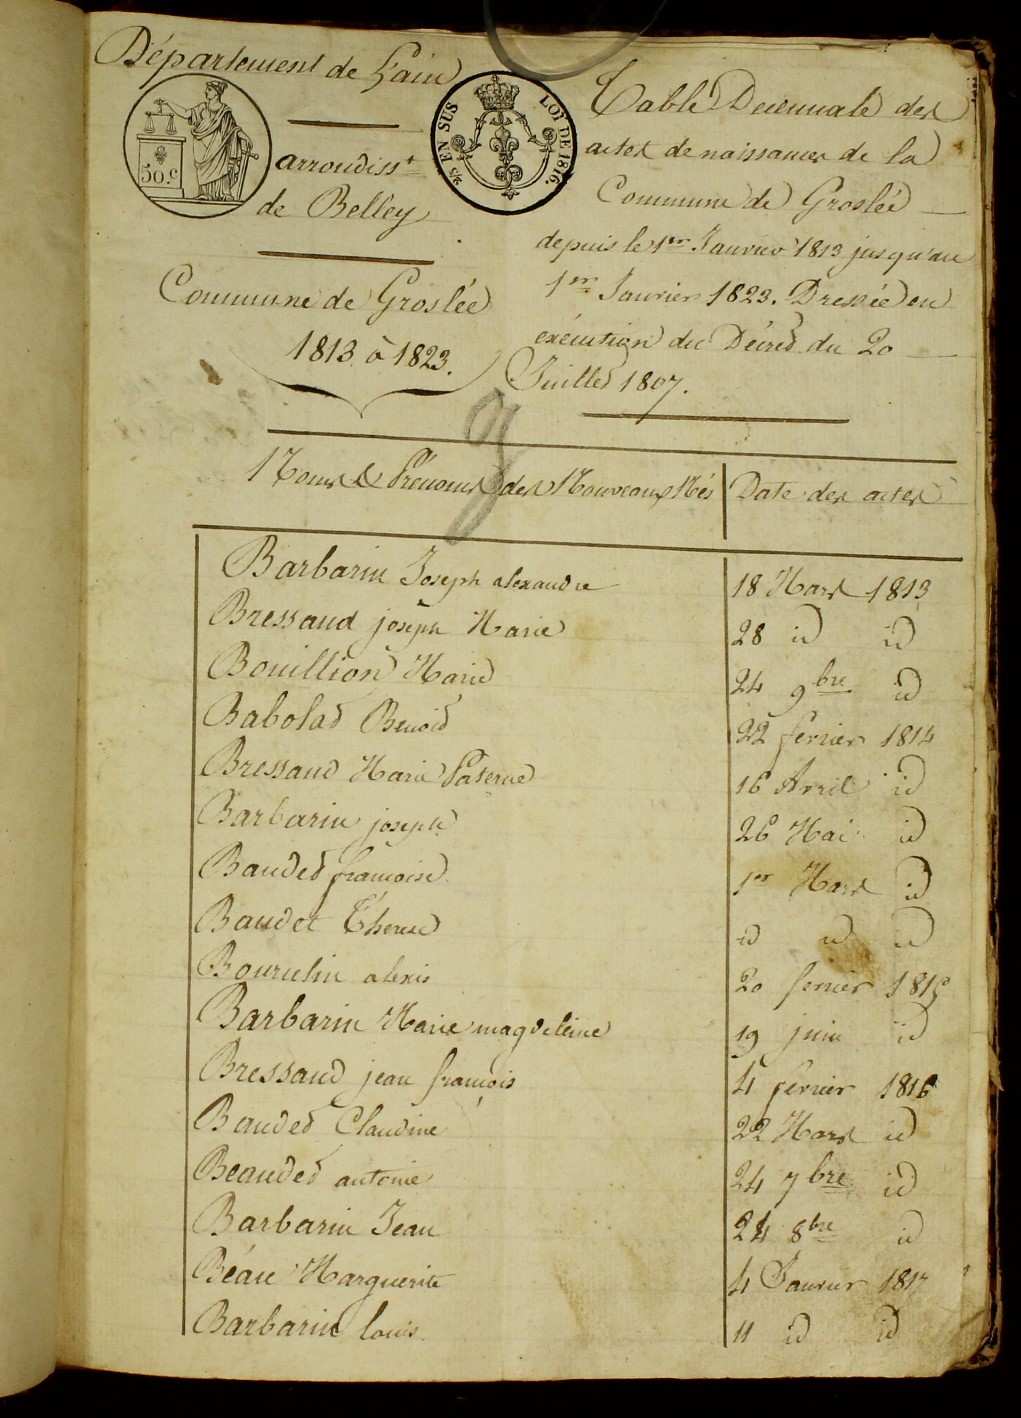 Département de l'ain
arrondisst
de Belley
Commune de Groslée
1813 à 1823.
50.c
2/5 EN SUS
LOI DE 1816.
Table Décennale des
actes de naissances de la
Commune de Groslée
depuis le 1er Janvier 1813 jusqu'au
1er Janvier 1823. Dressée en
exécution du Décret du 20
Juillet 1807.
Noms & Prénoms des Nouveaux Nés | Date des actes
Barbarin Joseph alexandre 18 Mars 1813
Bressand joseph Marie 28 id id
Bouillion Marie 24 9bre id
Babolat Benoit 22 fevrier 1814
Bressand Marie 16 Avril id
Barbarin joseph 26 Mai id
Baudet françoise 1er Mars id
Baudet Thérese id id id
alexis 20 fevrier 1815
Barbarin Marie magdeleine 19 juin id
Bressand jean françois 4 fevrier 1816
Baudet Claudine 22 Mars id
Beaudet antoine 24 7bre id
Barbarin Jean 24 8bre id
Béau Marguerite 4 Janvier 1817
Barbarin louis 11 id id